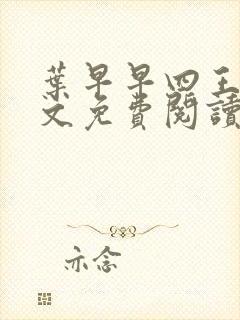 葉早早四王
文免費閱讀
亦念